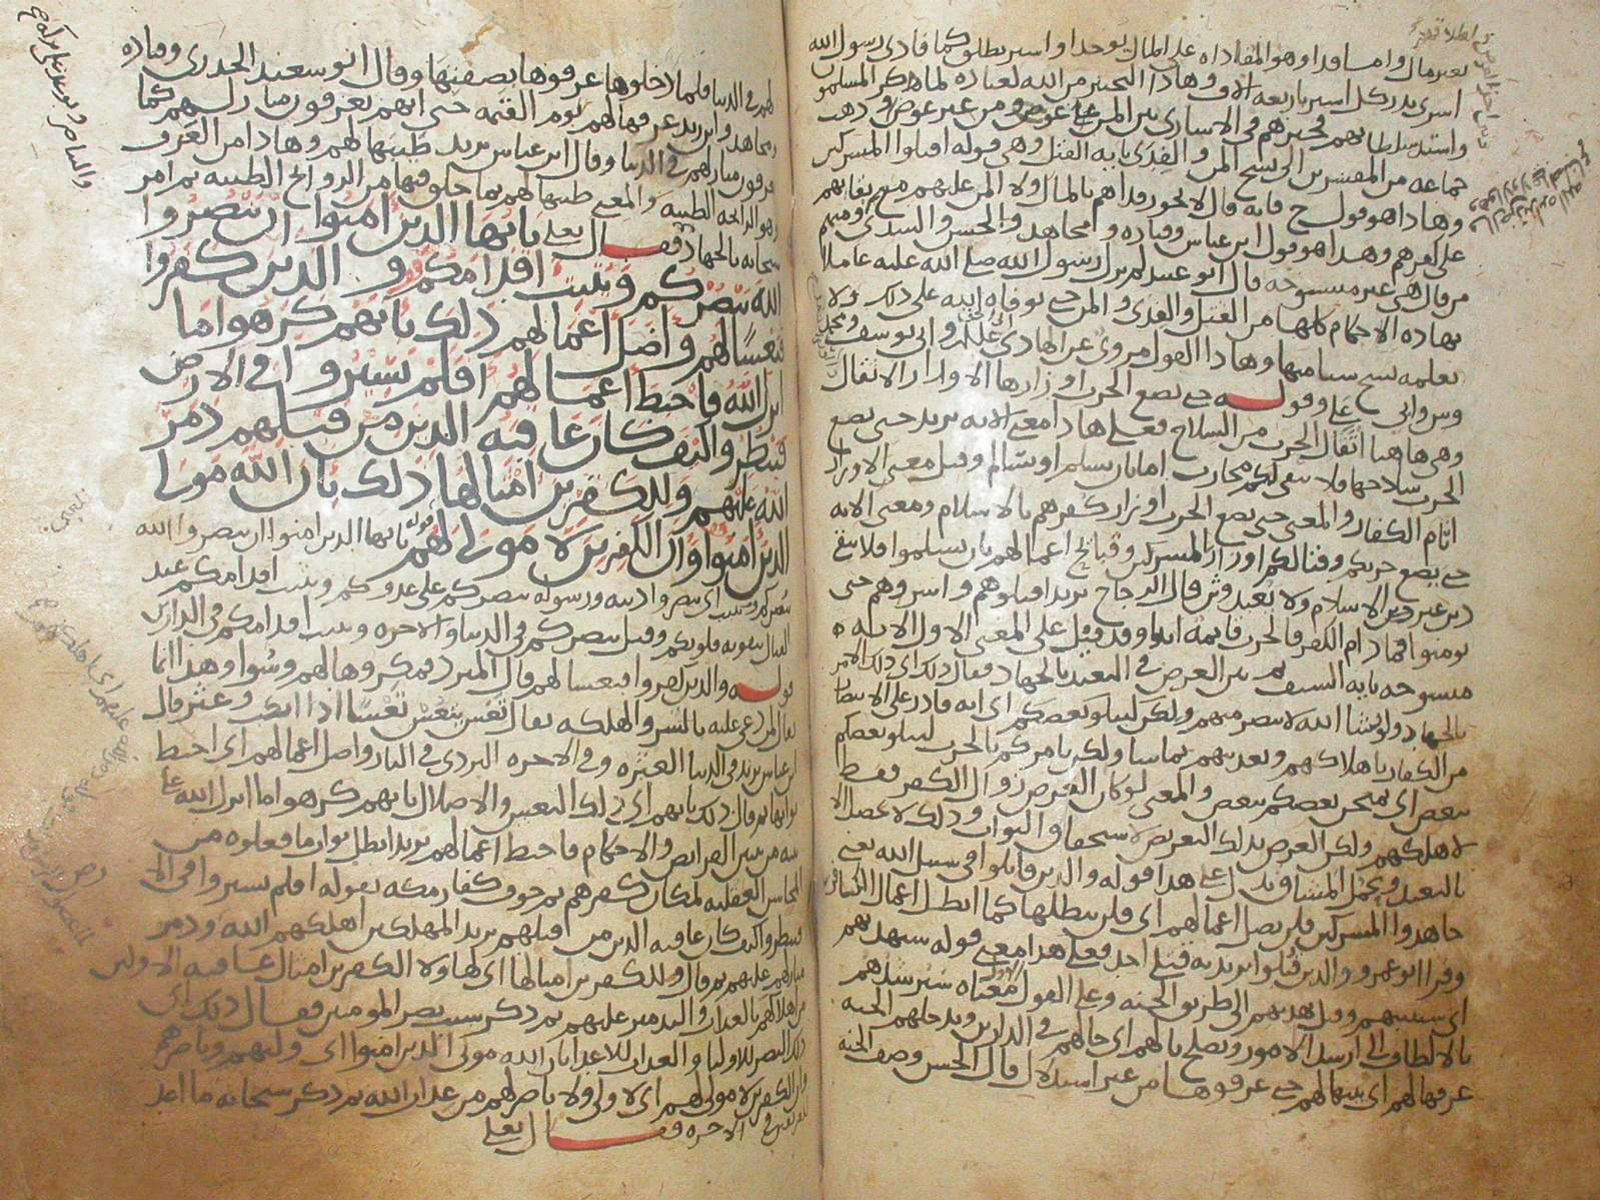 بعير مال واما فدا وهو المفاداه على اطال يوخذ او اسير يطلق كما فادى رسول الله
اسرى بدر كل اسير باربعه الاف وهاذا التخيير من الله لعباده لما كثر المسلمون
واستد سلطانهم فخيرهم في الاسارى بين المن على عوض ومن غير عوض وذهب
جماعه من المفسرين الى نسخ المن والفدى بايه القتل وهي قوله اقتلوا المشركين
وهاذا هو قول ح فانه قال لا يجوز فداهم بالمال ولا المن عليهم مع بقايهم
على كفرهم وهذا هو قول ابن عباس وقتاده ومجاهد والحسن والسدى ومنهم
من قال هي غير منسوخه قال ابو عبيد لم يزل رسول الله صلى الله عليه عاملا
بهاده الاحكام كلها من القتل والفدى والمن حتى توفاه الله على ذلك ولا
نعلمه نسخ شيا منها وهاذا القول مروى عن الهادى وابي يوسف ومحمد
وقوله حتى تضع الحرب اوزارها الاوزار الاثقال
وهي هاهنا اثقال الحرب من السلاح فعلى هاذا معنى الايه يريد حتى يضع
الحرب سلاحها فلا يبقى لكم محارب اما بان يسلم او يسالم وقيل معنى الاوزار
اثام الكفار والمعنى حتى يضع الحرب اوزار كفرهم بالاسلام ومعنى الايه
حتى يضع حربكم وقتالكم اوزار المشركين وقبائح اعمالهم بان يسلموا فلا يبقى
دين غير دين الاسلام ولا يعبد وثن قال الزجاج يريد اقتلوهم واسروهم حتى
يومنوا فما دام الكفر فالحرب قايمه ابدا وقد قيل على المعنى الاول الايه
منسوخه بايه السيف ثم بين الغرض في التعبد بالجهاد فقال ذلك اى ذلك الامر
بالجهاد ولو يشا الله لانتصر منهم ولكن ليبلو بعضكم اى انه قادر على الانتصار
من الكفار باهلاكهم وتعذيبهم بما شا ولكن يامركم بالحرب ليبلو بعضكم
ببعض اى يمتحن بعضكم ببعض والمعنى لو كان الغرض زوال الكفر فقط
لاهلكهم ولكن الغرض بذلك التعريض لاستحقاق الثواب وذلك لا يحصل الا
بالتعبد وتحمل المشاق على هذا قوله والذين قاتلوا في سبيل الله يعنى
جاهدوا المشركين فلن يضل اعمالهم اى فلن يبطلها كما ابطل اعمال الكافرين
وقرا ابو عمرو والذين قتلوا يريد به قتلى احد فعلى هذا معنى قوله سيهديهم
اى سيثيبهم وقيل يهديهم الى طريق الجنه وعلى القول الاول معناه سيرشدهم
بالالطاف الى ارشد الامور ويصلح بالهم اى حالهم في الدارين ويدخلهم الجنه
عرفها لهم اى بينها لهم حتى عرفوها من غير استدلال قال الحسن وصف الجنه
لهم في الدنيا فلما دخلوها عرفوها بصفتها وقال ابو سعيد الخدرى وقتاده
ومجاهد وابن زيد عرفها لهم يوم القيمه حتى انهم يعرفون منازلهم كما
يعرفون منازلهم في الدنيا وقال ابن عباس يريد طيبها لهم وهاذا من العرف
وهو الرايحه الطيبه والمعنى طيبها لهم بما خلق فيها من الروايح الطيبه ثم امر
سبحانه بالجهاد فقال تعلى يايها الذين امنوا ان تنصروا
الله ينصركم ويثبت اقدامكم والذين كفروا
فتعسا لهم واضل اعمالهم ذلك بانهم كرهوا ما
انزل الله فاحبط اعمالهم افلم يسيروا في الارض
فينظروا كيف كان عاقبه الذين من قبلهم دمر
الله عليهم وللكفرين امثالها ذلك بان الله مولى
الذين امنوا وان الكفرين لا مولى لهم قوله يايها الذين امنوا ان تنصروا الله
ينصركم ويثبت اى تنصروا دينه ورسوله ينصركم على عدوكم ويثبت اقدامكم عند
القتال بتقويه قلوبكم وقيل ينصركم في الدنيا والاخره ويثبت اقدامكم في الدارين
قوله والذين كفروا فتعسا لهم قال المبرد فمكروها لهم وسوا وهذا انما
يقال لمن دعى عليه بالشر والهلكه يقال تعس يتعس تعسا اذا انكب وعثر قال
ابن عباس يريد في الدنيا العثره وفي الاخره التردى في النار واضل اعمالهم اى احبط
ثوابها ثم قال ذلك بانهم اى ذلك التعس والاضلال بانهم كرهوا ما انزل الله على
نبيه من تبيين الفرايض والاحكام فاحبط اعمالهم يريد ابطل ثواب ما فعلوه من
المحاسن العقليه لمكان كفرهم ثم خوف كفار مكه بقوله افلم يسيروا في الا
فينظروا كيف كان عاقبه الذين من قبلهم يريد المهلكين اهلكهم الله ودمر
منازلهم عليهم ثم قال وللكفرين امثالها اى لهاولا الكفرين امثال عاقبه الاولين
من اهلاكهم بالعذاب والتدمير عليهم ثم ذكر سبب نصر المومنين فقال ذلك اى
ذلك النصر للاوليا والعذاب للاعدا بان الله مولى الذين امنوا اى وليهم وناصرهم
وان الكفرين لا مولى لهم اى لا ولى ولا ناصر لهم من عذاب الله ثم ذكر سبحانه ما اعد
للفريقين في الاخره فقال تعلى